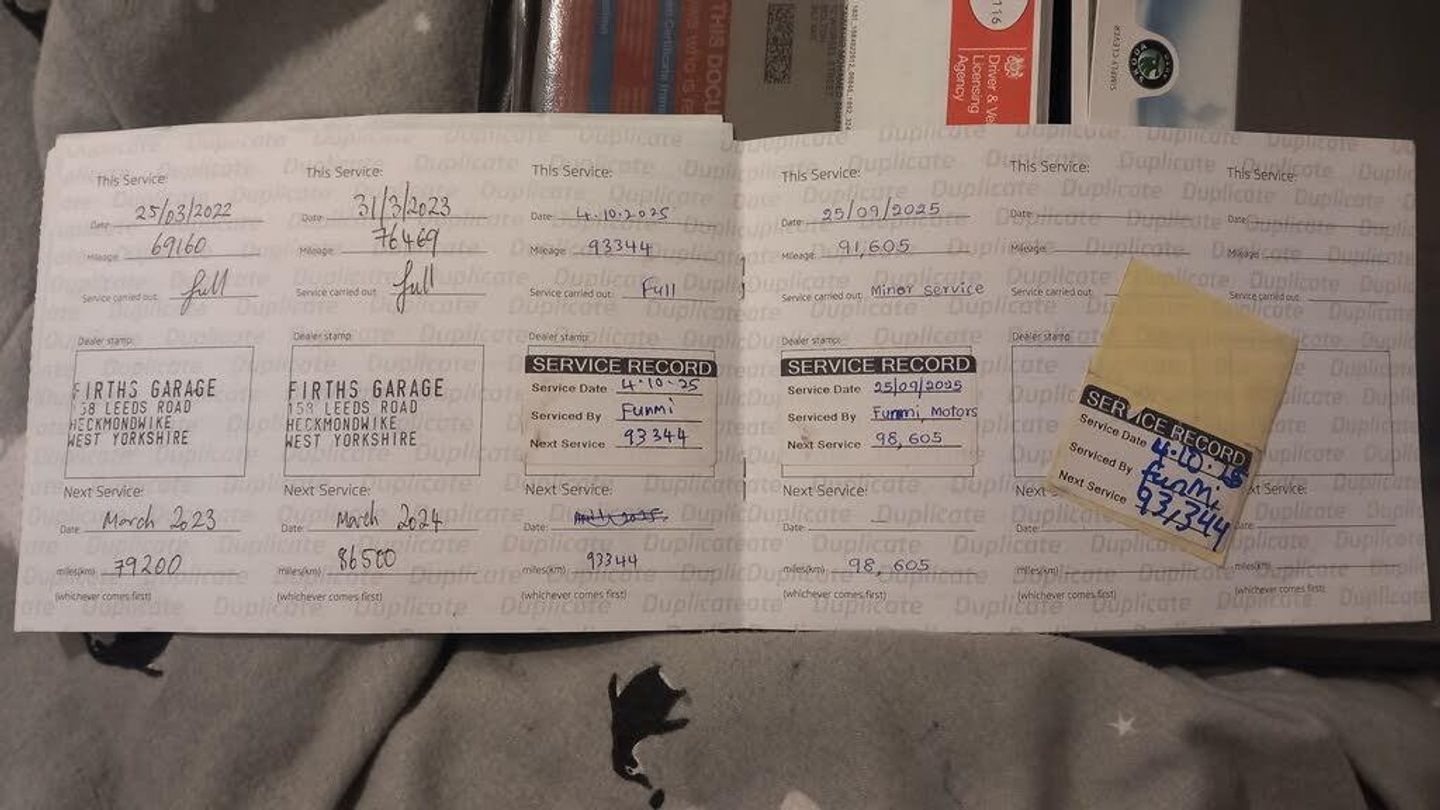 THIS DOCU
Driver & Ve
Licensing
Agency
116
ŠKODA
SIMPLY CLEVER
Duplicate
This Service:
Date: 25/03/2022
Mileage: 69160
Service carried out: full
Dealer stamp:
FIRTHS GARAGE
158 LEEDS ROAD
HECKMONDWIKE
WEST YORKSHIRE
Next Service:
Date: March 2023
miles(km) 79200
(whichever comes first)
This Service:
Date: 31/3/2023
Mileage: 76469
Service carried out: full
Dealer stamp:
FIRTHS GARAGE
158 LEEDS ROAD
HECKMONDWIKE
WEST YORKSHIRE
Next Service:
Date: March 2024
miles(km) 86500
(whichever comes first)
This Service:
Date: 4.10.2025
Mileage: 93344
Service carried out: Full
Dealer stamp:
SERVICE RECORD
Service Date 4.10.25
Serviced By Funmi
Next Service 93344
Next Service:
Date:
miles(km) 93344
(whichever comes first)
This Service:
Date: 25/09/2025
Mileage: 91,605
Service carried out: Minor service
Dealer stamp:
SERVICE RECORD
Service Date 25/09/2025
Serviced By Funmi, Motors
Next Service 98,605
Next Service:
Date:
miles(km) 98,605
(whichever comes first)
This Service:
Date:
Mileage:
Service carried out:
Dealer stamp:
SERVICE RECORD
Service Date 4.10.25
Serviced By FunMi
Next Service 93,344
Date:
miles(km)
(whichever comes first)
This Service:
Date:
Mileage:
Service carried out:
xt Service:
Date:
miles(km)
(whichever comes first)